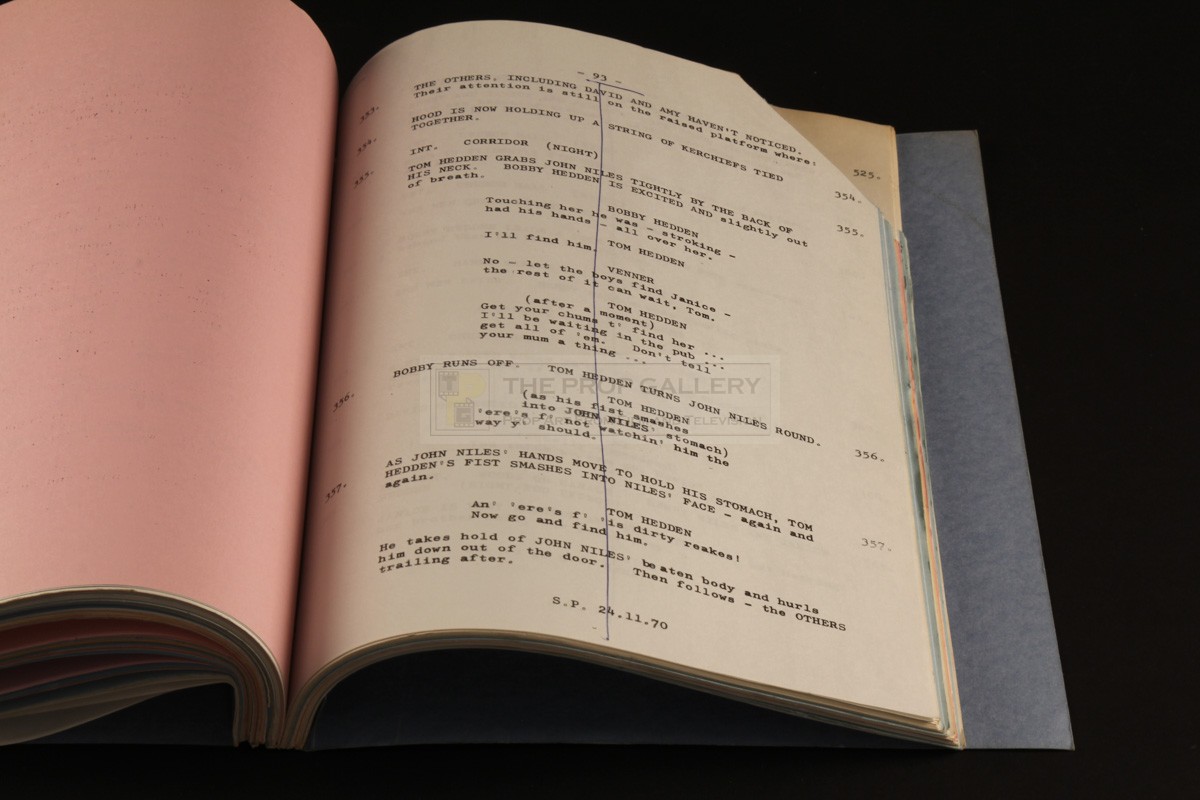 - 93 -
THE OTHERS, INCLUDING DAVID AND AMY HAVEN'T NOTICED.
Their attention is still on the raised platform where:
353. 525.
HOOD IS NOW HOLDING UP A STRING OF KERCHIEFS TIED
TOGETHER.
354. 354.
INT. CORRIDOR (NIGHT)
355. 355.
TOM HEDDEN GRABS JOHN NILES TIGHTLY BY THE BACK OF
HIS NECK. BOBBY HEDDEN IS EXCITED AND slightly out
of breath.
BOBBY HEDDEN
Touching her he was - stroking -
had his hands - all over her.
TOM HEDDEN
I'll find him.
VENNER
No - let the boys find Janice -
the rest of it can wait, Tom.
TOM HEDDEN
(after a moment)
Get your chums t' find her ...
I'll be waiting in the pub ...
get all of 'em. Don't tell
your mum a thing ...
BOBBY RUNS OFF. TOM HEDDEN TURNS JOHN NILES ROUND.
356. 356.
TOM HEDDEN
(as his fist smashes
into JOHN NILES' stomach)
'ere's f' not watchin' him the
way y' should.
AS JOHN NILES' HANDS MOVE TO HOLD HIS STOMACH, TOM
HEDDEN'S FIST SMASHES INTO NILES' FACE - again and
again.
357. 357.
TOM HEDDEN
An' 'ere's f' 'is dirty reakes!
Now go and find him.
He takes hold of JOHN NILES' beaten body and hurls
him down out of the door. Then follows - the OTHERS
trailing after.
S.P. 24.11.70
THE PROP GALLERY